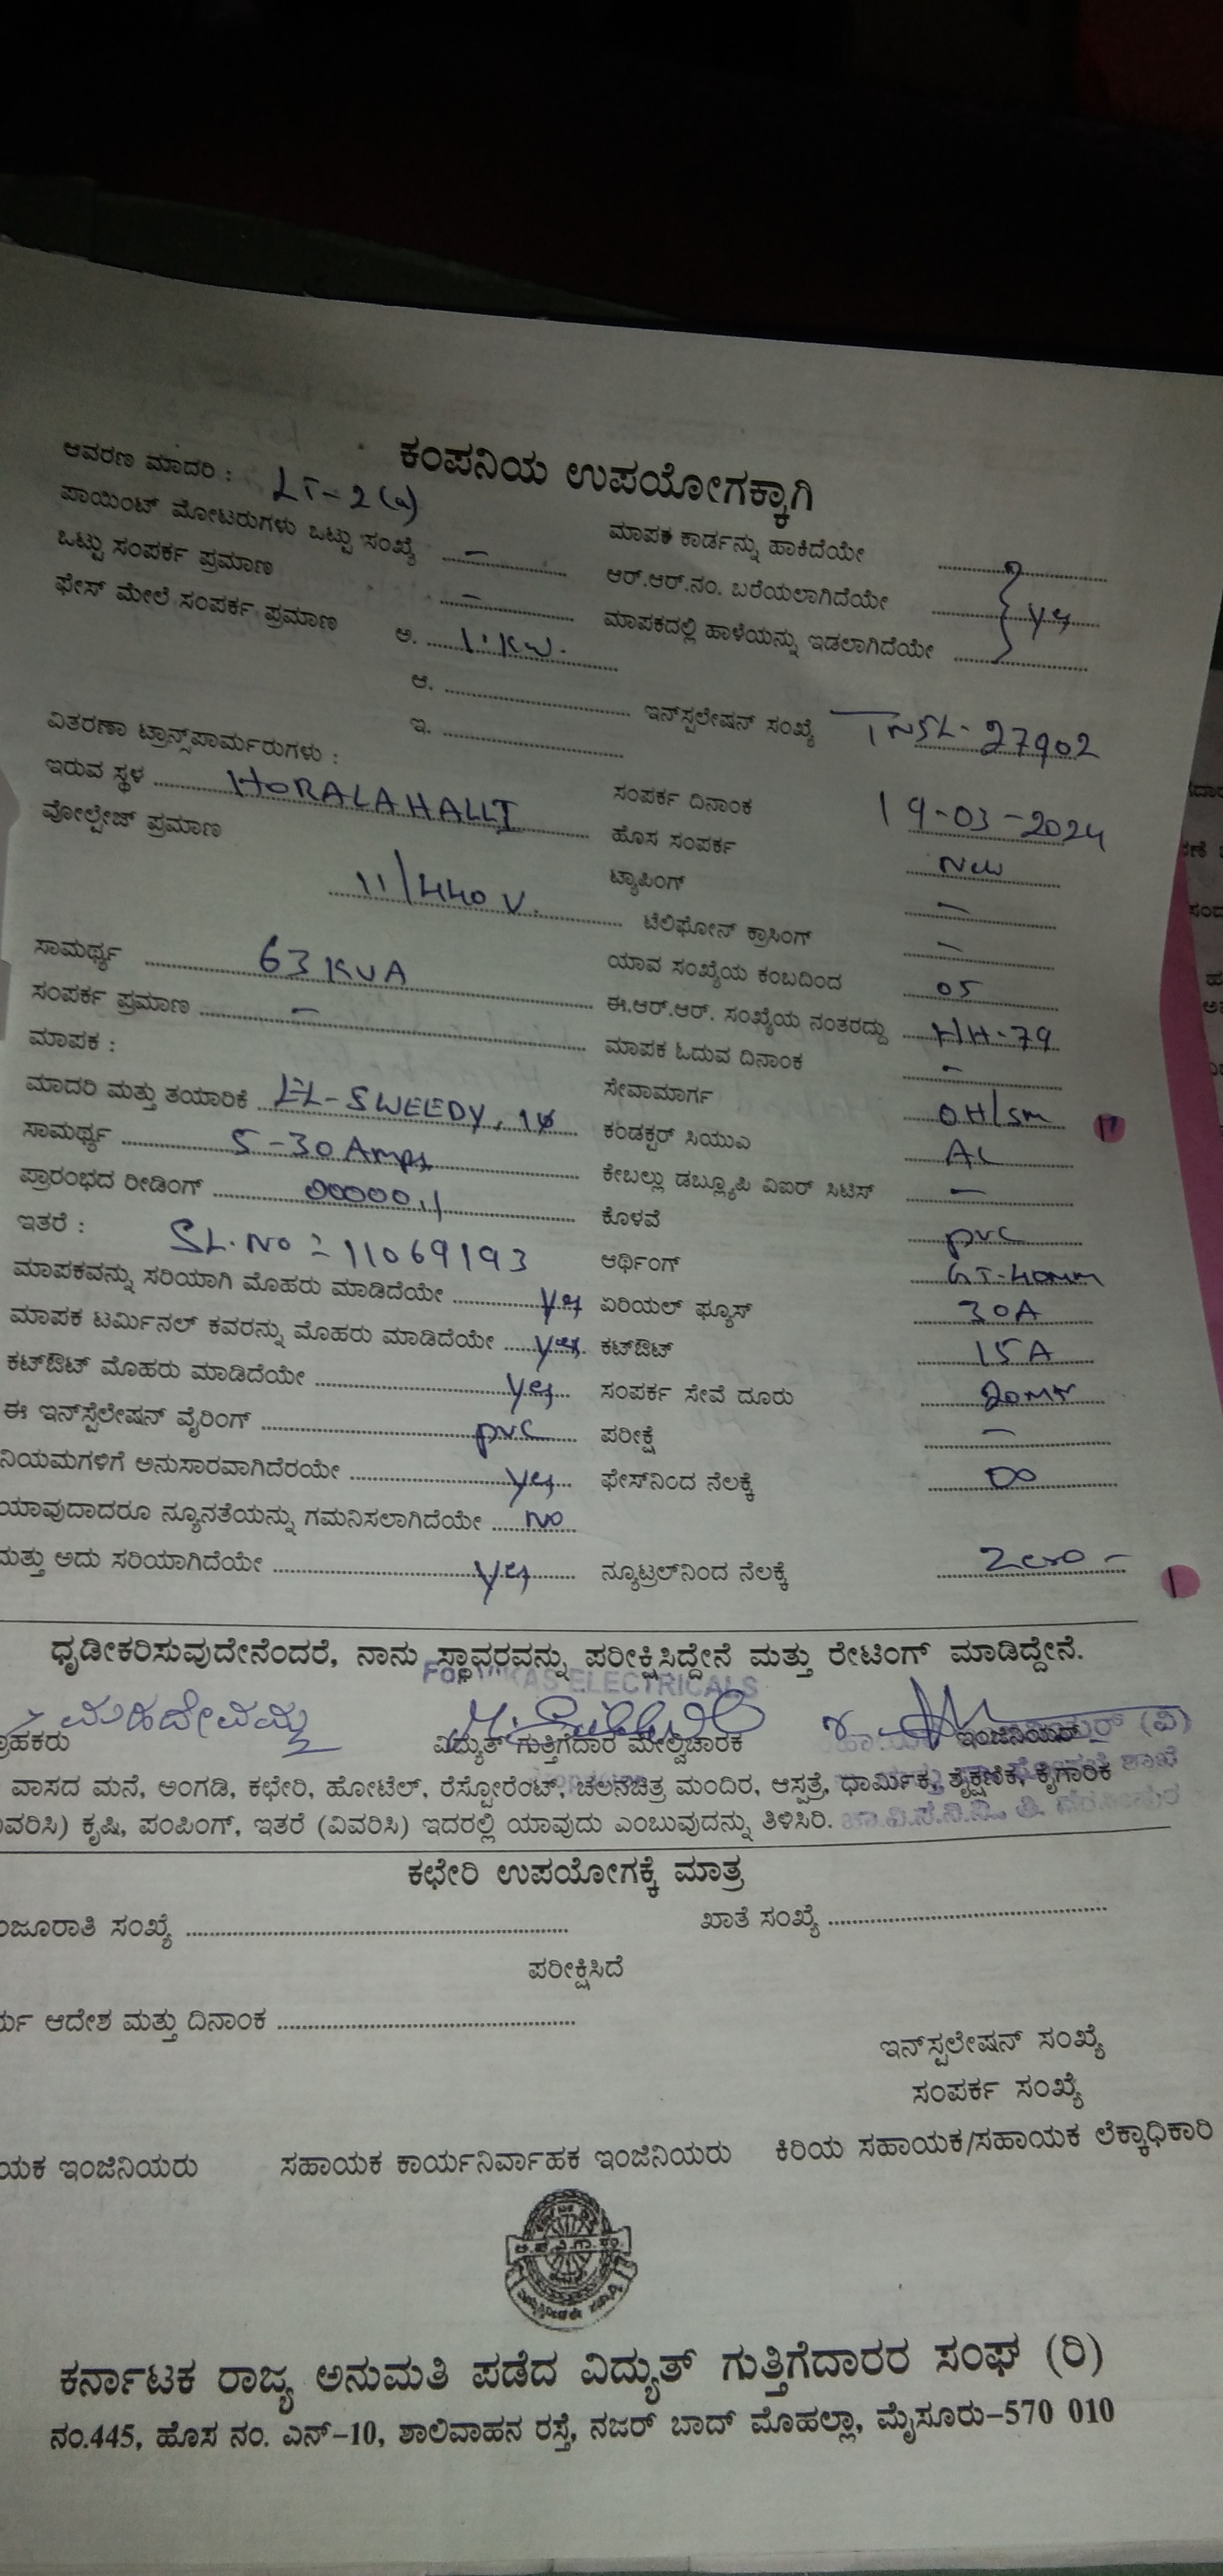 ಕಂಪನಿಯ ಉಪಯೋಗಕ್ಕಾಗಿ
ಆವರಣ ಮಾದರಿ : LT-2(a)
ಪಾಯಿಂಟ್ ಮೋಟರುಗಳು ಒಟ್ಟು ಸಂಖ್ಯೆ –
ಒಟ್ಟು ಸಂಪರ್ಕ ಪ್ರಮಾಣ –
ಫೇಸ್ ಮೇಲೆ ಸಂಪರ್ಕ ಪ್ರಮಾಣ ಅ. 1 KW.
ಆ.
ಇ.
ವಿತರಣಾ ಟ್ರಾನ್ಸ್‌ಪಾರ್ಮರುಗಳು :
ಇರುವ ಸ್ಥಳ HORALAHALLI
ವೋಲ್ಟೇಜ್ ಪ್ರಮಾಣ 11/440 V.
ಸಾಮರ್ಥ್ಯ 63 KVA
ಸಂಪರ್ಕ ಪ್ರಮಾಣ –
ಮಾಪಕ :
ಮಾದರಿ ಮತ್ತು ತಯಾರಿಕೆ SWEEDY, 1φ
ಸಾಮರ್ಥ್ಯ 5-30 Amps
ಪ್ರಾರಂಭದ ರೀಡಿಂಗ್ 00000.1
ಇತರೆ : SL.No = 11069193
ಮಾಪಕವನ್ನು ಸರಿಯಾಗಿ ಮೊಹರು ಮಾಡಿದೆಯೇ yes
ಮಾಪಕ ಟರ್ಮಿನಲ್ ಕವರನ್ನು ಮೊಹರು ಮಾಡಿದೆಯೇ yes.
ಕಟ್‌ಔಟ್ ಮೊಹರು ಮಾಡಿದೆಯೇ yes
ಈ ಇನ್‌ಸ್ಟೆಲೇಷನ್ ವೈರಿಂಗ್ pvc
ನಿಯಮಗಳಿಗೆ ಅನುಸಾರವಾಗಿದೆರಯೇ yes
ಯಾವುದಾದರೂ ನ್ಯೂನತೆಯನ್ನು ಗಮನಿಸಲಾಗಿದೆಯೇ no
ಮತ್ತು ಅದು ಸರಿಯಾಗಿದೆಯೇ yes
ಮಾಪಕ ಕಾರ್ಡನ್ನು ಹಾಕಿದೆಯೇ
ಆರ್.ಆರ್.ನಂ. ಬರೆಯಲಾಗಿದೆಯೇ } yes
ಮಾಪಕದಲ್ಲಿ ಹಾಳೆಯನ್ನು ಇಡಲಾಗಿದೆಯೇ
ಇನ್‌ಸ್ಟಲೇಷನ್ ಸಂಖ್ಯೆ TNSL-27902
ಸಂಪರ್ಕ ದಿನಾಂಕ 19-03-2024
ಹೊಸ ಸಂಪರ್ಕ New
ಟ್ಯಾಪಿಂಗ್ –
ಟೆಲಿಫೋನ್ ಕ್ರಾಸಿಂಗ್ –
ಯಾವ ಸಂಖ್ಯೆಯ ಕಂಬದಿಂದ 05
ಈ.ಆರ್.ಆರ್. ಸಂಖ್ಯೆಯ ನಂತರದ್ದು HH-79
ಮಾಪಕ ಓದುವ ದಿನಾಂಕ –
ಸೇವಾಮಾರ್ಗ OH/sm
ಕಂಡಕ್ಟರ್ ಸಿಯುಎ AL
ಕೇಬಲ್ಲು ಡಬ್ಲ್ಯೂಪಿ ವಿಐರ್ ಸಿಟಿಸ್ –
ಕೊಳವೆ pvc
ಆರ್ಥಿಂಗ್ GI-40mm
ಏರಿಯಲ್ ಫ್ಯೂಸ್ 30A
ಕಟ್‌ಔಟ್ 15A
ಸಂಪರ್ಕ ಸೇವೆ ದೂರು 20mtr
ಪರೀಕ್ಷೆ –
ಫೇಸ್‌ನಿಂದ ನೆಲಕ್ಕೆ ∞
ನ್ಯೂಟ್ರಲ್‌ನಿಂದ ನೆಲಕ್ಕೆ Zero –
ಧೃಡೀಕರಿಸುವುದೇನೆಂದರೆ, ನಾನು ಸ್ಥಾವರವನ್ನು ಪರೀಕ್ಷಿಸಿದ್ದೇನೆ ಮತ್ತು ರೇಟಿಂಗ್ ಮಾಡಿದ್ದೇನೆ.
For VIKAS ELECTRICALS
ಮಹದೇವಮ್ಮ
ಗ್ರಾಹಕರು ವಿದ್ಯುತ್ ಗುತ್ತಿಗೆದಾರ ಮೇಲ್ವಿಚಾರಕ ಇಂಜಿನಿಯರ್
ವಾಸದ ಮನೆ, ಅಂಗಡಿ, ಕಛೇರಿ, ಹೋಟೆಲ್, ರೆಸ್ಟೋರೆಂಟ್, ಚಲನಚಿತ್ರ ಮಂದಿರ, ಆಸ್ಪತ್ರೆ, ಧಾರ್ಮಿಕ, ಶೈಕ್ಷಣಿಕ, ಕೈಗಾರಿಕ
(ವಿವರಿಸಿ) ಕೃಷಿ, ಪಂಪಿಂಗ್, ಇತರೆ (ವಿವರಿಸಿ) ಇದರಲ್ಲಿ ಯಾವುದು ಎಂಬುವುದನ್ನು ತಿಳಿಸಿರಿ.
ಕಛೇರಿ ಉಪಯೋಗಕ್ಕೆ ಮಾತ್ರ
ಮಂಜೂರಾತಿ ಸಂಖ್ಯೆ ಖಾತೆ ಸಂಖ್ಯೆ
ಪರೀಕ್ಷಿಸಿದೆ
ಆದೇಶ ಮತ್ತು ದಿನಾಂಕ
ಇನ್‌ಸ್ಟಲೇಷನ್ ಸಂಖ್ಯೆ
ಸಂಪರ್ಕ ಸಂಖ್ಯೆ
ಇಂಜಿನಿಯರು ಸಹಾಯಕ ಕಾರ್ಯನಿರ್ವಾಹಕ ಇಂಜಿನಿಯರು ಕಿರಿಯ ಸಹಾಯಕ/ಸಹಾಯಕ ಲೆಕ್ಕಾಧಿಕಾರಿ
ಕರ್ನಾಟಕ ರಾಜ್ಯ ಅನುಮತಿ ಪಡೆದ ವಿದ್ಯುತ್ ಗುತ್ತಿಗೆದಾರರ ಸಂಘ (ರಿ)
ನಂ.445, ಹೊಸ ನಂ. ಎನ್-10, ಶಾಲಿವಾಹನ ರಸ್ತೆ, ನಜರ್ ಬಾದ್ ಮೊಹಲ್ಲಾ, ಮೈಸೂರು-570 010